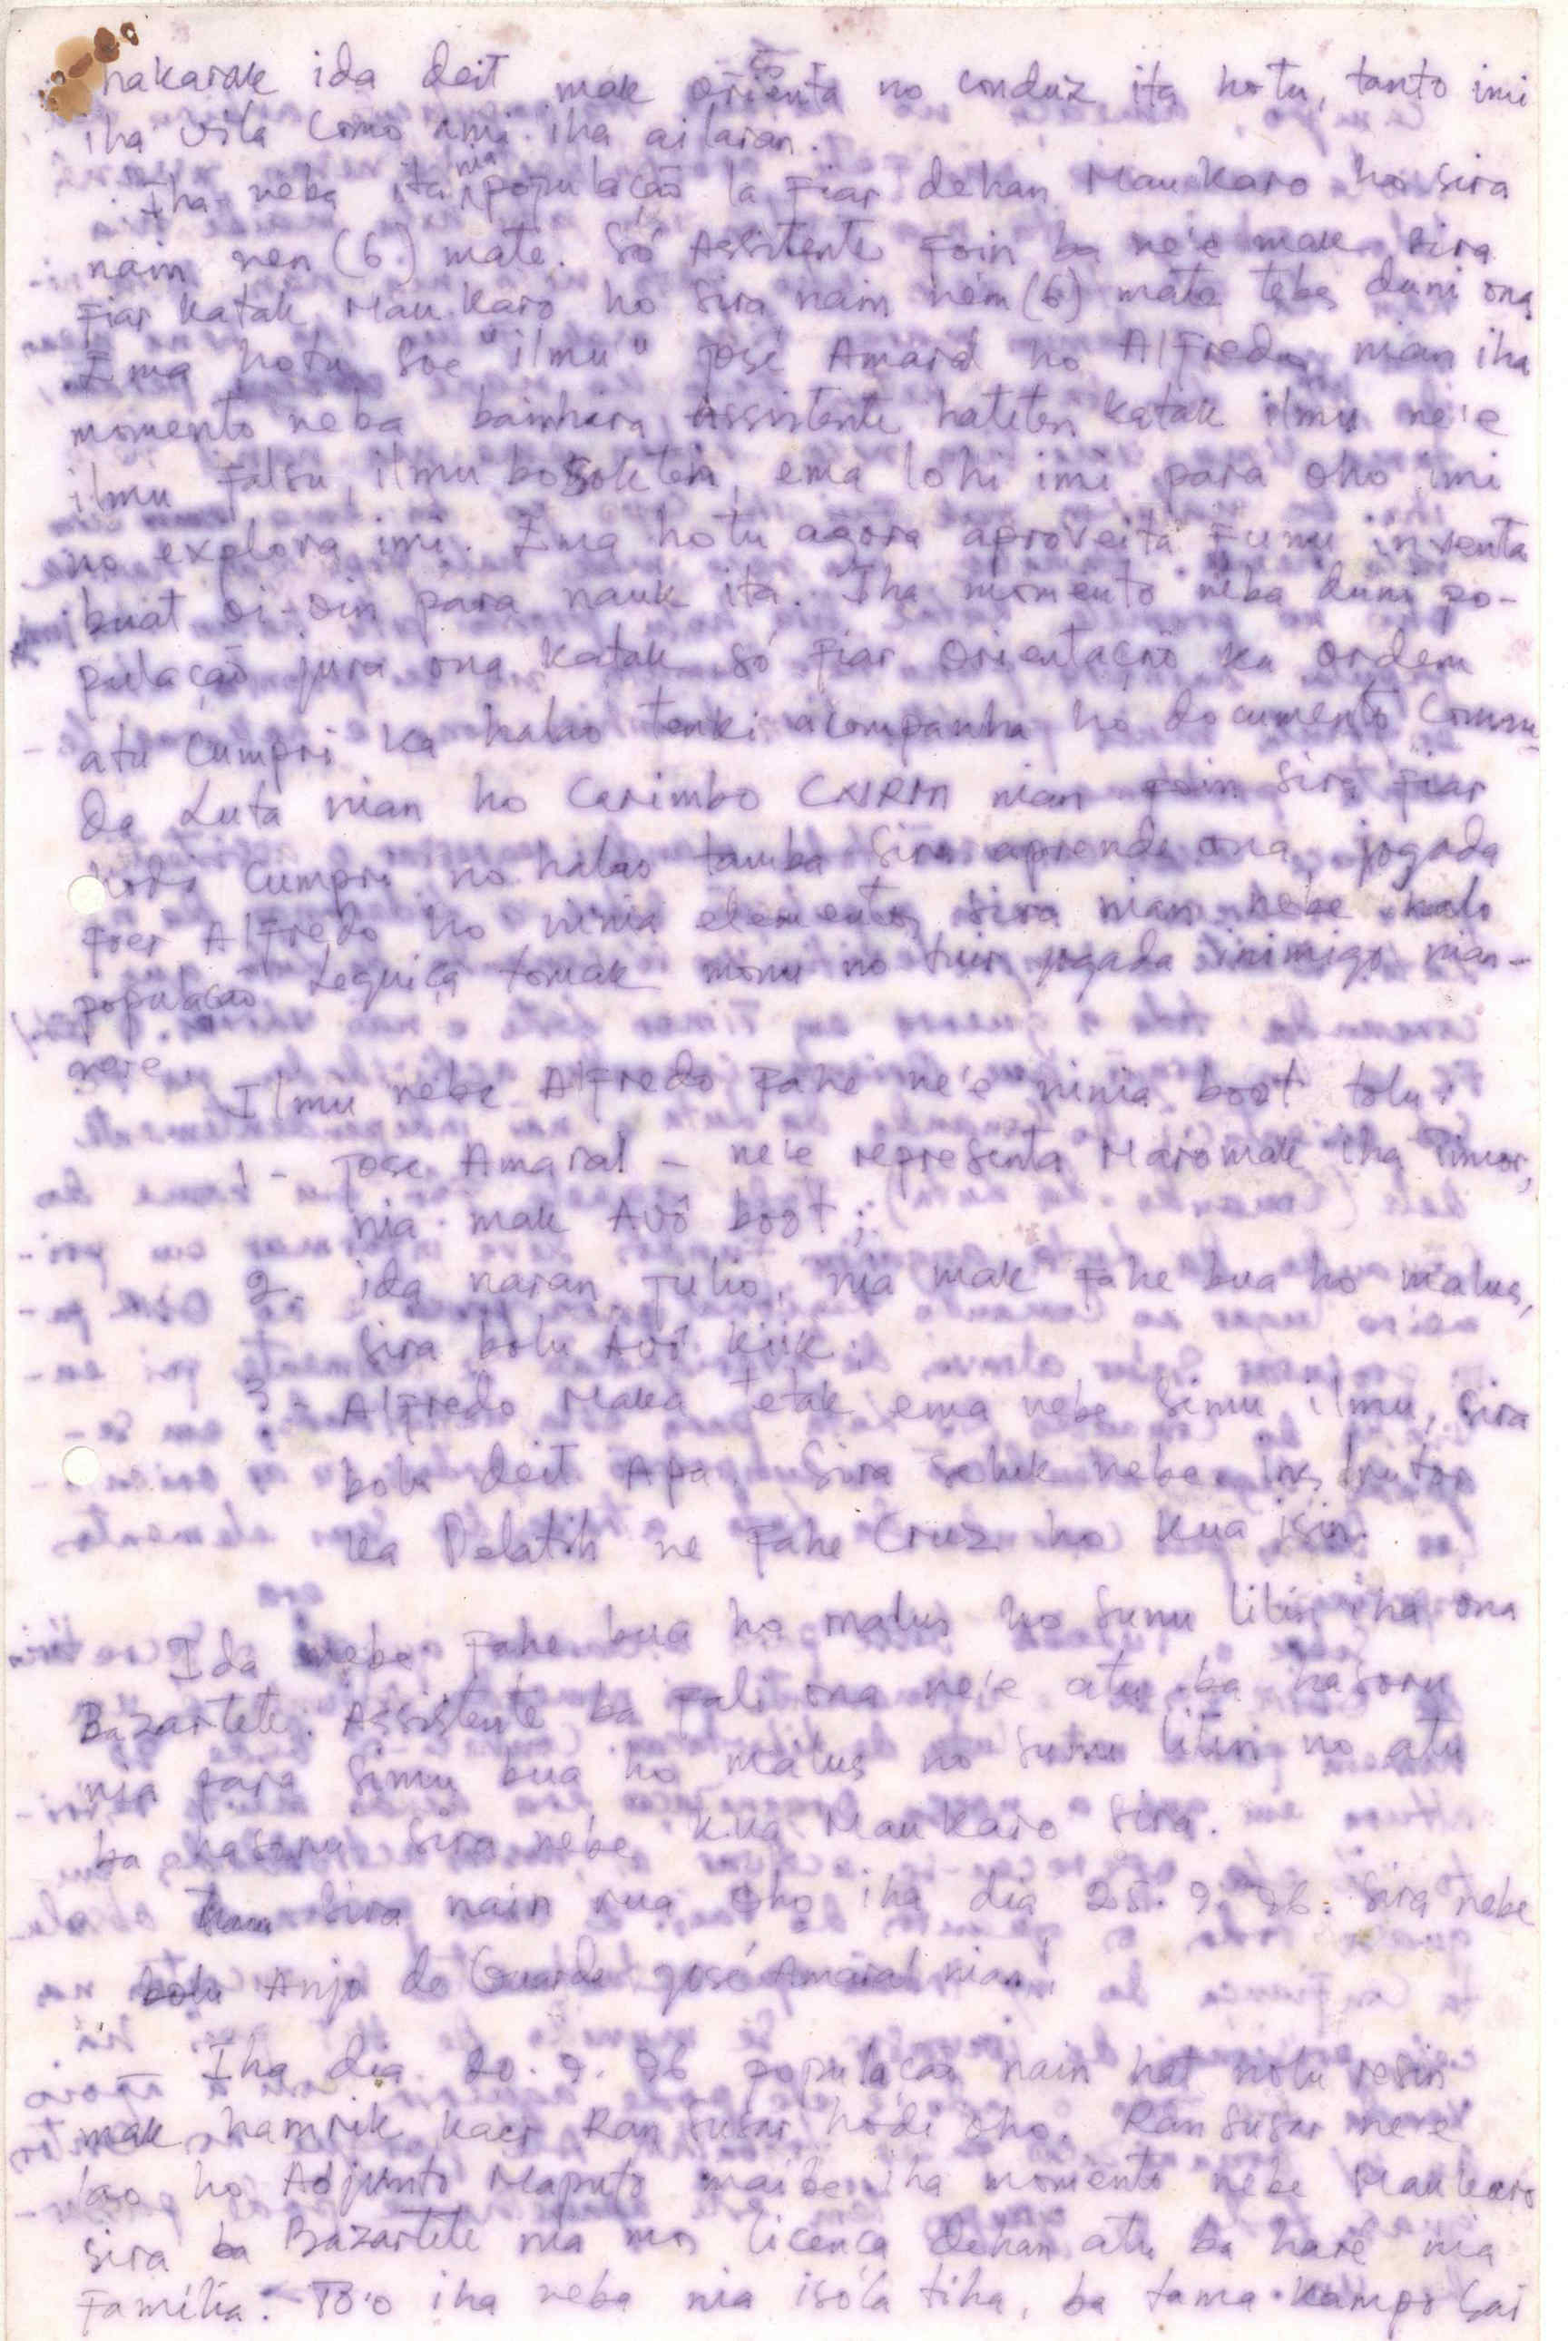 hakarak ida deit mak orienta no conduz ita hotu, tanto imi
iha vila como ami iha ailaran.
Iha neba ita nia população la fiar dehan Mau Karo ho sira
nain nen (6) mate. Só Assitente foin ba ne'e mak sira
fiar katak Mau Karo ho sira nain nem (6) mate tebes duni ona
Ema hotu soe "ilmu" José Amaral no Alfredo nian iha
momento neba bainhira Assistente hateten katak ilmu ne'e
ilmu falsu, ilmu bosokten, ema lohi imi para oho imi
no explora imi. Ema hotu agora aproveita Funu inventa
buat oi-oin para nauk ita. Iha momento neba duni po-
pulação jura ona katak só fiar Orientação ka ordem
atu cumpri ka halao tenki acompanha ho documento Coman
da Luta nian ho Carimbo CNRM nian foin sira fiar
hodi cumpri no halao tamba sira aprende ona jogada
foer Alfredo ho ninia elementos sira nian nebe halo
população Lequiça tomak monu no tuir jogada inimigo nian-
ne'e
Ilmu nebe Alfredo fahe ne'e ninia boot tolu:
1 - Jose Amaral - ne'e representa Maromak iha Timor,
nia mak Avô boot;
2- ida naran Julio, nia mak fahe bua ho malus,
sira bolu Avô kiik.
3 - Alfredo Maka tetak ema nebe simu ilmu, sira
bolu deit Apa. Sira seluk nebe instrutor
ka Pelatih ne fahe Cruz ho kua isin.
Ida nebe fahe bua ho malus ho sunu lilin iha ona
Bazartete. Assistente ba fali ona ne'e atu ba hasoru
nia para simu bua ho malus no sunu lilin no atu
ba hasoru sira nebe kua Mau Karo sira.
sira nain rua oho iha dia 25.9.96: sira nebe
bolu Anjo da Guarda José Amaral nian!
Iha dia 20.9.96 população nain hat nolu resin
mak hamrik kaer Ran Susar hodi oho. Ran Susar ne'e
lao ho Adjunto Maputo maibe iha momento nebe Maukaro
sira ba Bazartete nia mos licença dehan atu ba hare nia
Família. To'o iha neba nia isóla tiha, ba tama kampo Sai